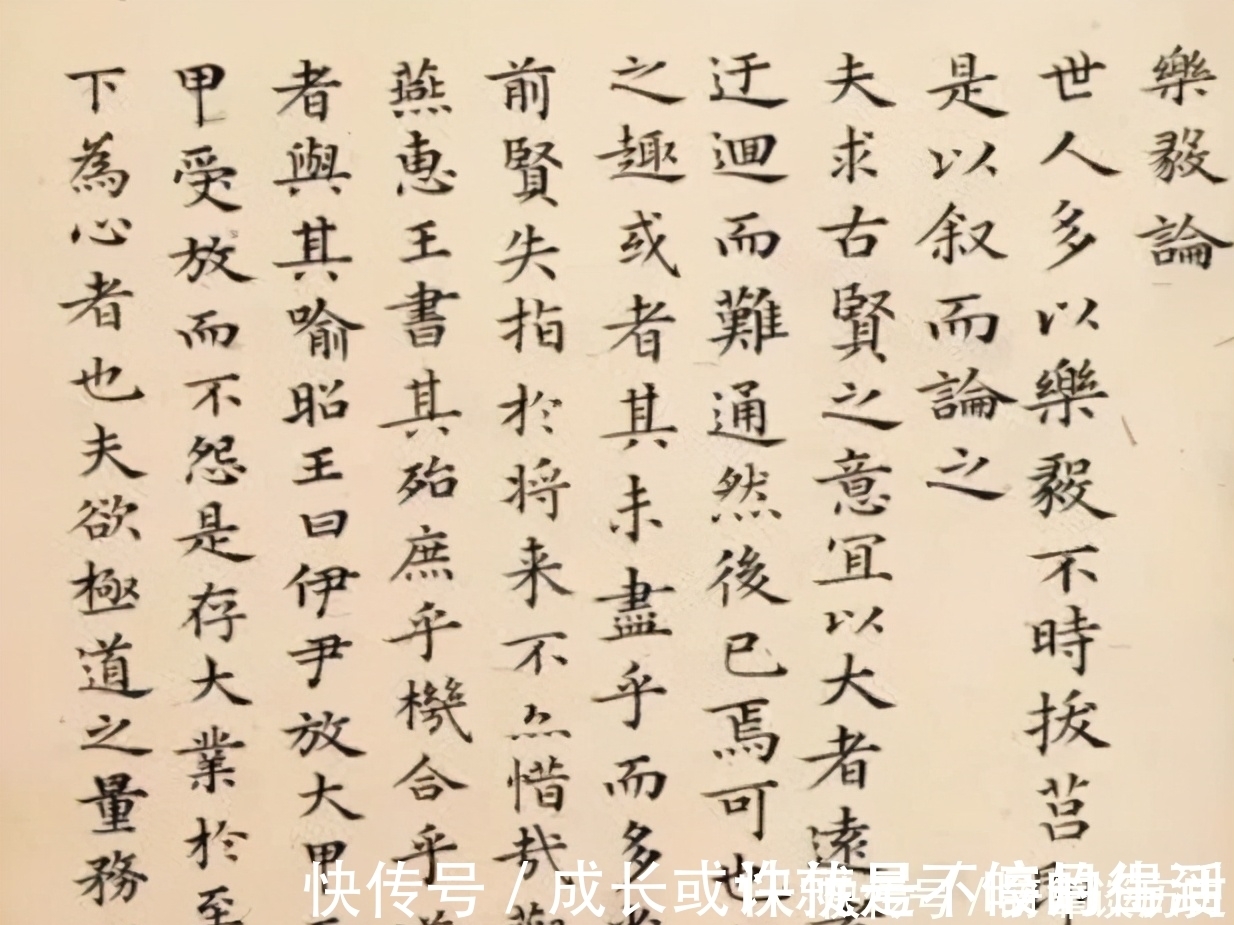 樂毅論
世人多以樂毅不時拔莒即
是以叙而論之
夫求古賢之意宜以大者遠
迂迴而難通然後已焉可也
之趣或者其未盡乎而多
前賢失指於将来不亦惜哉
燕惠王書其殆庶乎機合乎
者與其喻昭王曰伊尹放大甲
甲受放而不怨是存大業於至
下為心者也夫欲極道之量務
快传号 / 成长或许就是